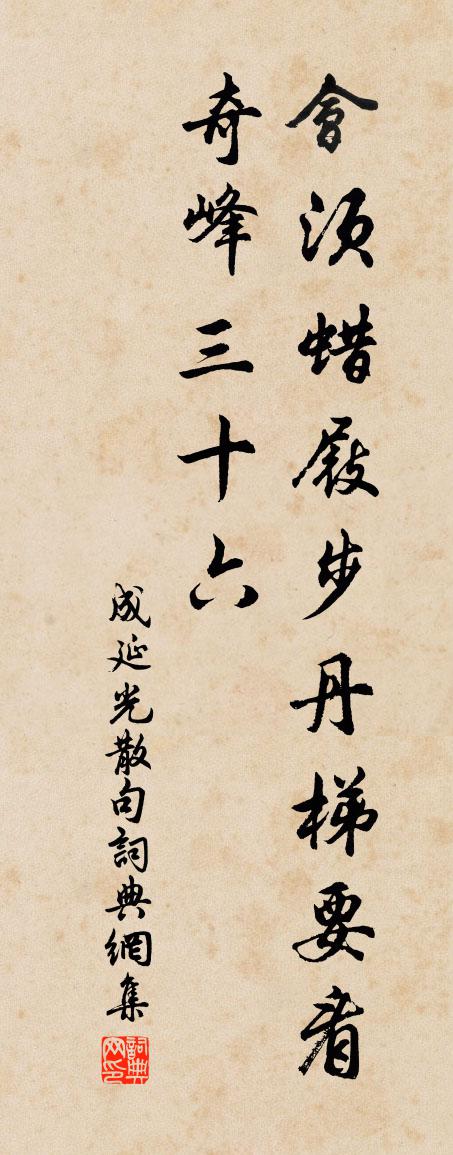 會須蜡屐步丹梯要看
奇峰三十六
成延光散句詞典網集
詞典
网印